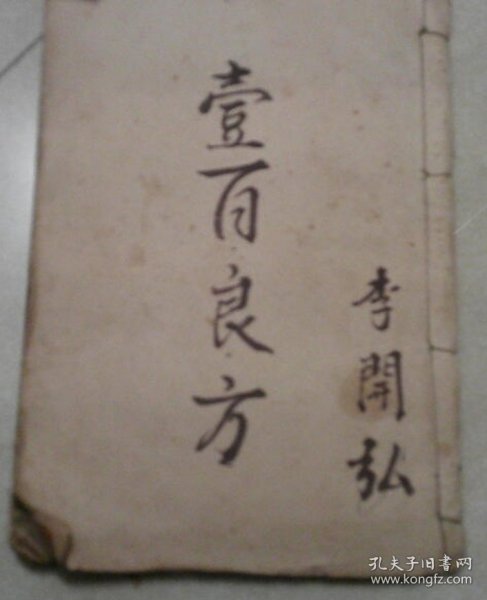 李開弘
壹百良方
孔夫子旧書网
www.kongfz.com